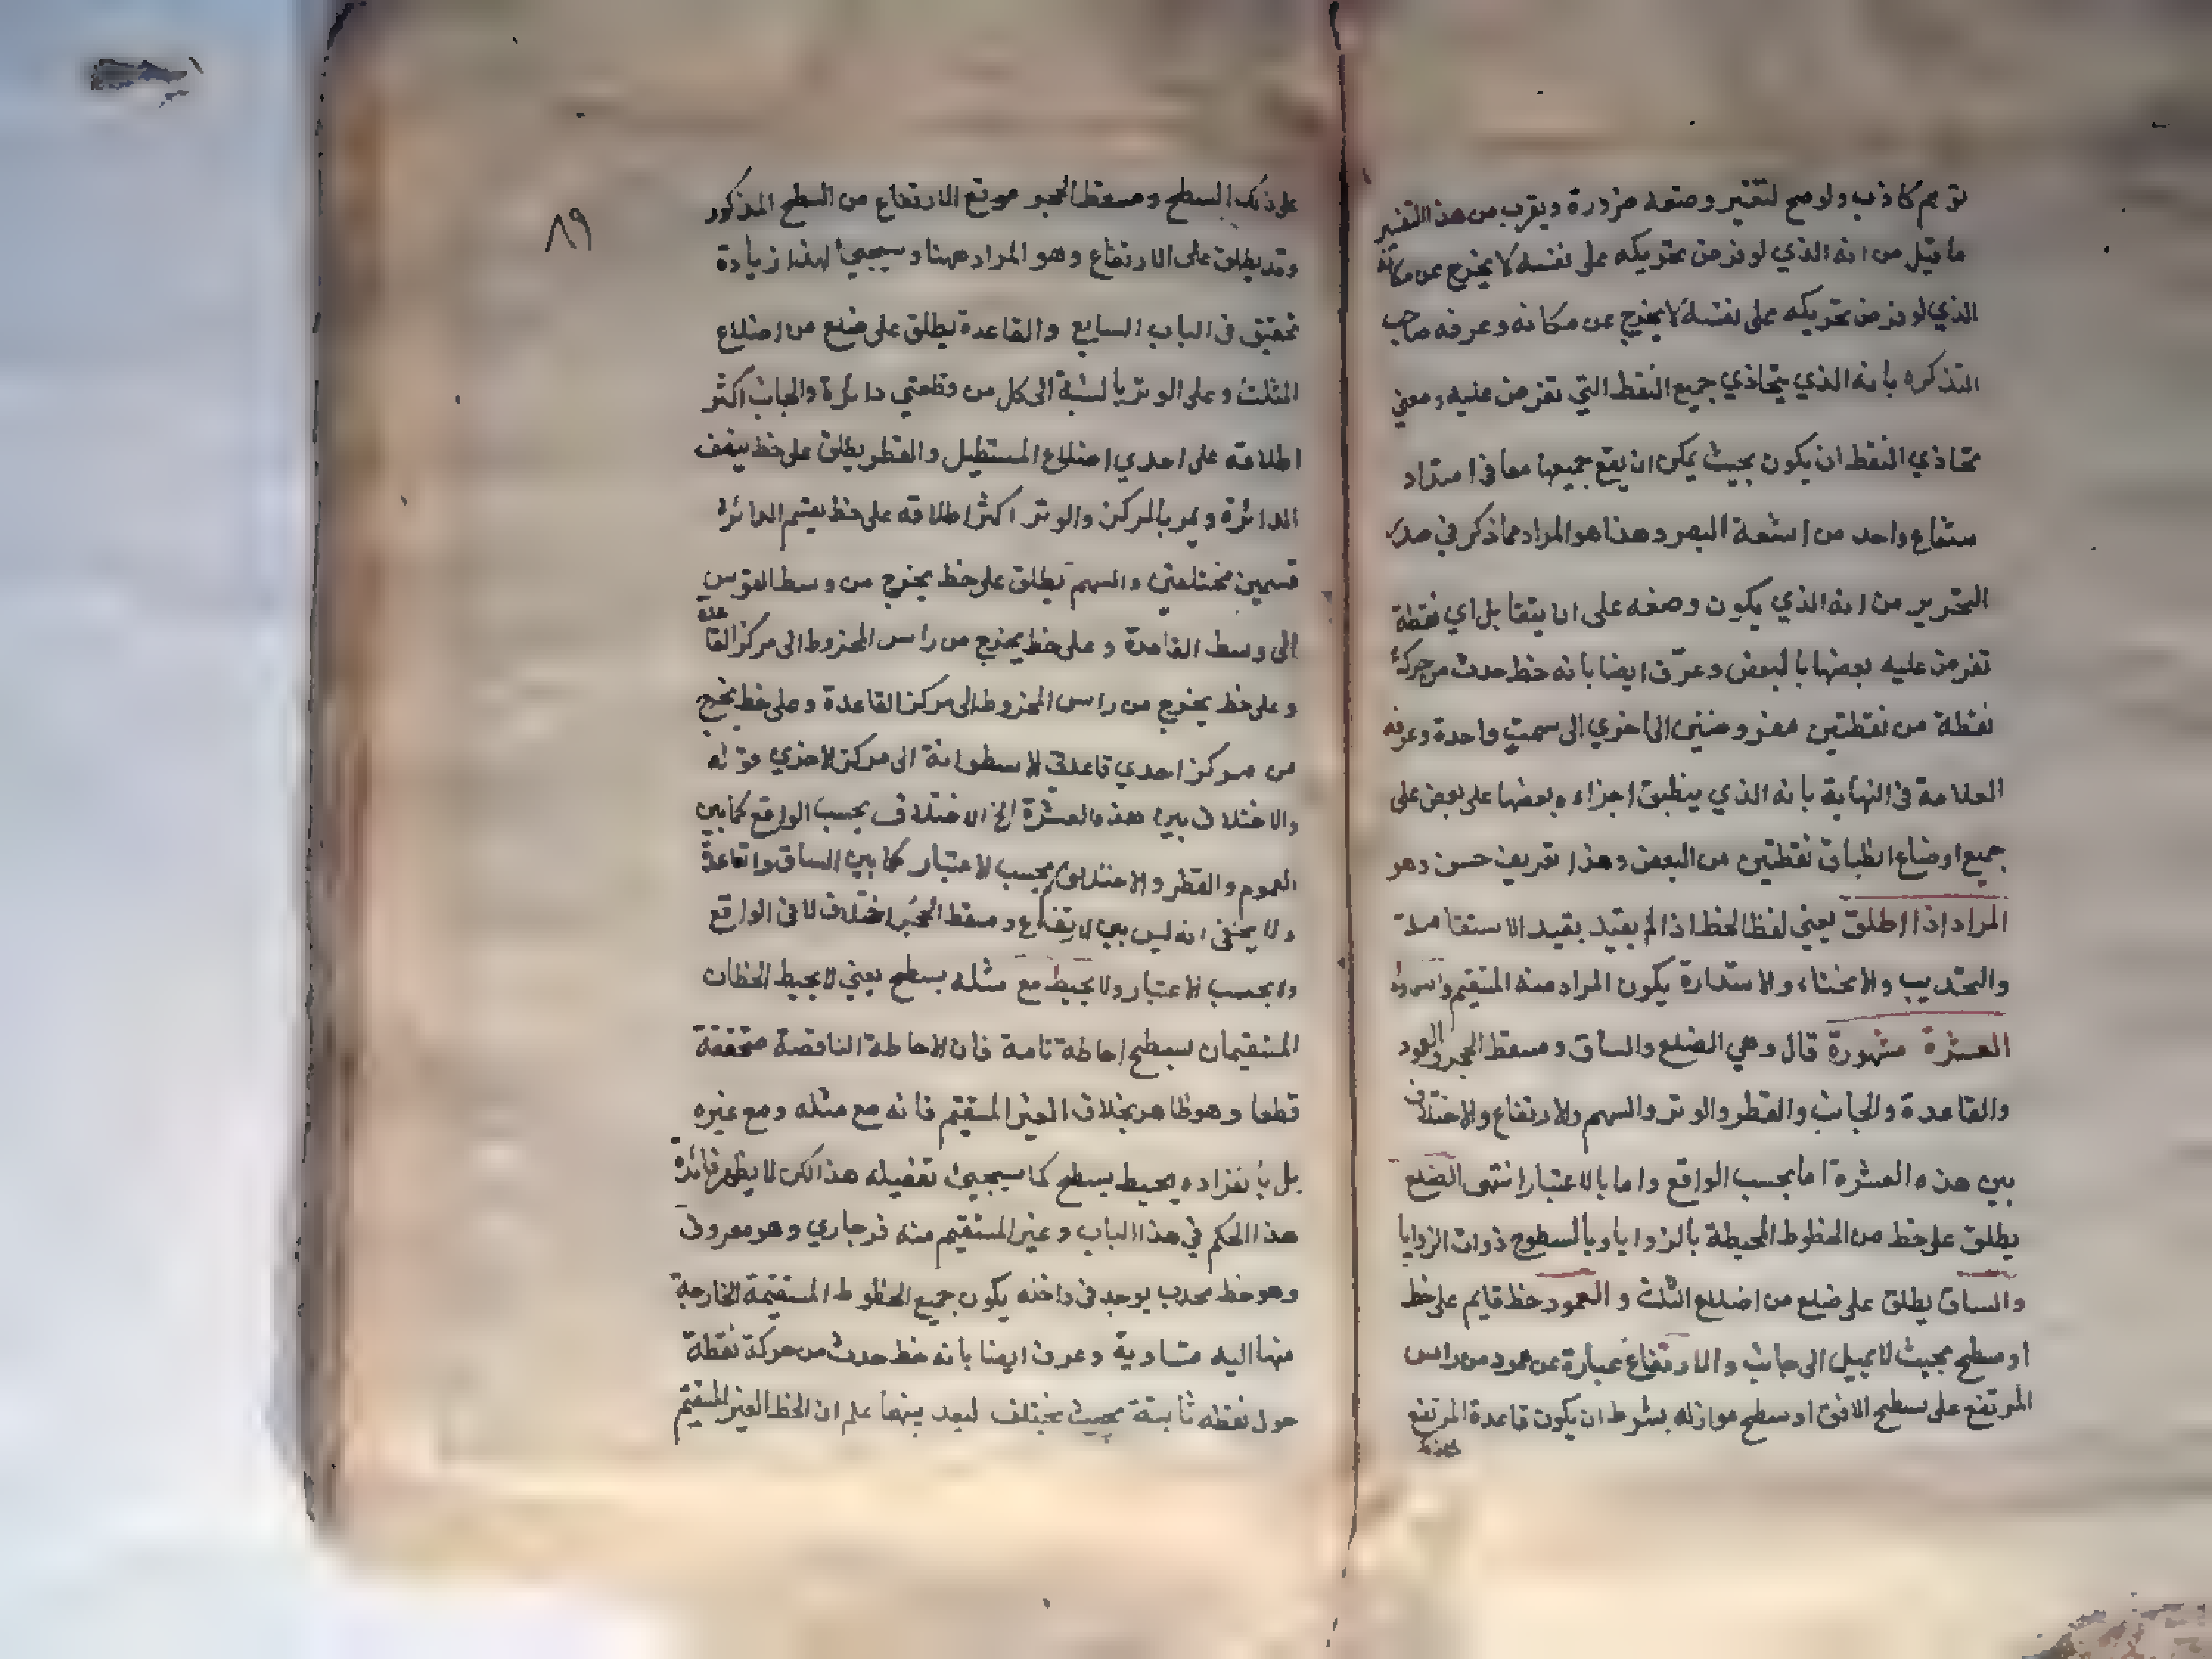 توهم كاذب ولو صح لتغير وصفه ضرورة ويقرب من هذا التفسير
ما قيل من انه الذي لو فرض تحريكه على نفسه لا يخرج عن مكانه
الذي لو فرض تحريكه على نفسه لا يخرج عن مكانه وعرفه صاحب
التذكره بانه الذي يتحاذي جميع النقط التي تفرض عليه ومعني
تحاذي النقط ان يكون بحيث يمكن ان يقع جميعها معا في امتداد
شعاع واحد من اشعة البصر وهذا هو المراد مما ذكر في صدر
التحرير من انه الذي يكون وضعه على ان يتقابل اي نقطة
تفرض عليه بعضها بالبعض وعرّف ايضا بانه خط حدث من حركة
نقطة من نقطتين مفروضتين الى اخري الى سمت واحدة وعرفه
العلامة في النهاية بانه الذي ينطبق اجزاءه بعضها على بعض على
جميع اوضاع انطباق نقطتين من البعض وهذا تعريف حسن وهو
المراد اذا اطلق يعني لفظ الخط اذا لم يقيد بقيد الاستقامة
والتحديب والانحناء والاستدارة يكون المراد منه المستقيم واسماؤه
العشرة مشهورة قال وهي الضلع والساق ومسقط الحجر والعمود
والقاعدة والجانب والقطر والوتر والسهم والارتفاع والاختلاف
بين هذه العشرة اما بحسب الواقع واما بالاعتبار انتهى الضلع
يطلق على خط من الخطوط المحيطة بالزوايا وبالسطوح ذوات الزوايا
والساق يطلق على ضلع من اضلاع المثلث والعمود خط قايم على خط
او سطح بحيث لا يميل الى جانب والارتفاع عبارة عن عمود من راس
المرتفع على سطح الافق او سطح موازله بشرط ان يكون قاعدة المرتفع
٨٩
على ذلك السطح ومسقط الحجر موقع الارتفاع من السطح المذكور
وقد يطلق على الارتفاع وهو المراد ههنا وسيجيئ لهذا زيادة
تحقيق في الباب السابع والقاعدة يطلق على ضلع من اضلاع
المثلث وعلى الوتر بالنسبة الى كل من قطعتي دائرة والجانب اكثر
اطلاقه على احدي اضلاع المستطيل والقطر يطلق على خط ينصف
الدائرة ويمر بالمركز والوتر اكثر اطلاقه على خط يقسم الدائرة
قسمين مختلفين والسهم يطلق على خط يخرج من وسط القوس
الى وسط القاعدة وعلى خط يخرج من راس المخروط الى مركز القاعدة
وعلى خط يخرج من راس المخروط الى مركز القاعدة وعلى خط يخرج
من مركز احدي قاعدتي الاسطوانة الى مركز الاخري قوله
والاختلاف بين هذه العشرة الخ الاختلاف بحسب الواقع كما بين
العموم والقطر والاختلاف بحسب الاعتبار كما بين الساق والقاعدة
ولا يخفى انه ليس بين الارتفاع ومسقط الحجر اختلاف لا في الواقع
ولا بحسب الاعتبار ولا يحيط مع مثله بسطح يعني لا يحيط الخطان
المستقيمان بسطح احاطة تامة فان الاحاطة الناقصة متحققة
قطعا وهو ظاهر بخلاف الغير المستقيم فانه مع مثله ومع غيره
بل بانفراده يحيط بسطح كما سيجيئ تفصيله هذا لكن لا يظهر فائدة
هذا الحكم في هذا الباب وغير المستقيم منه فرجاري وهو معروف
وهو خط محدب يوجد في داخله يكون جميع الخطوط المستقيمة الخارجة
منها اليه متساوية وعرف ايضا بانه خط حدث من حركة نقطة
حول نقطه ثابتة بحيث يختلف لبعد بينهما علم ان الخط الغير المستقيم